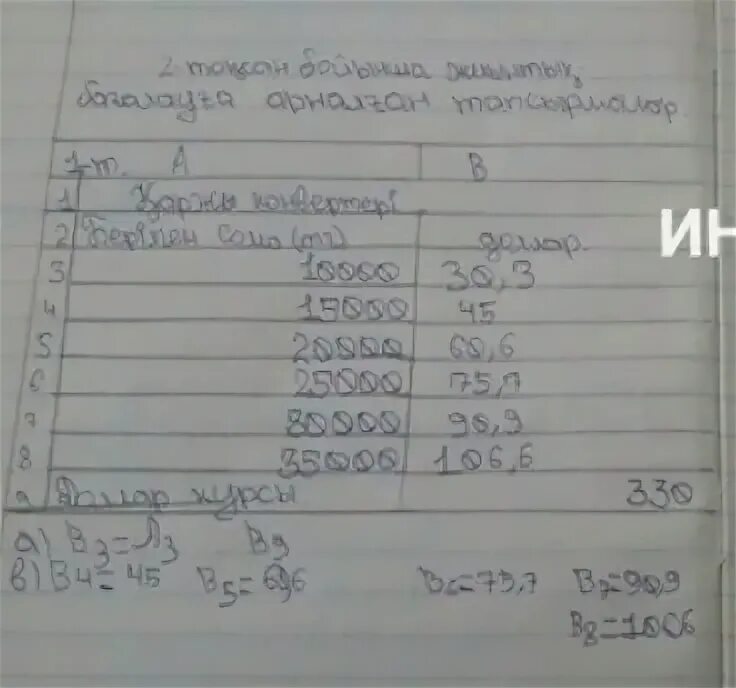 2 тоқсан бойынша жиынтық
бағалауға арналған тапсырмалар.
1-т. A B
1 Қаржы конвертері
2 Берілген сома (тг) доллар.
3 10000 30,3
4 15000 45
5 20000 60,6
6 25000 75,7
7 30000 90,9
8 35000 106,6
9 Доллар курсы 330
а) B3=A3 B9
в) B4=45 B5=60,6 B6=75,7 B7=90,9
B8=1006
ИН